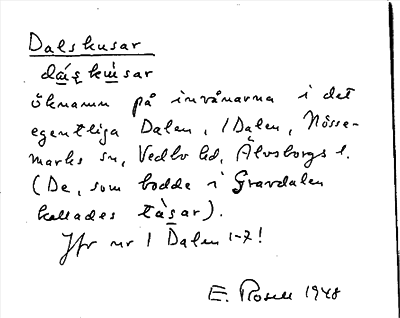 Dalskusar
öknamn på invånarna i det
egentliga Dalen, 1 Dalen, Nösse-
marks sn, Vedbo hd, Älvsborgs l.
(De, som bodde i Gravdalen
kallades tàsar).
Jfr nr 1 Dalen 1-7!
E. Rosell 1948